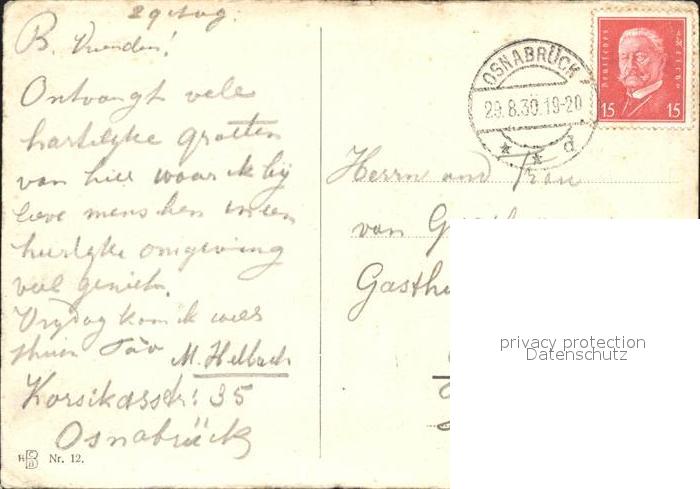 29 Aug.
B. Vrienden!
Ontvangt vele
hartelijke groeten
van hier waar ik bij
lieve menschen in een
heerlijke omgeving
veel geniet.
Vrijdag kom ik weer
thuis
M. Helbach
Korsikasstr: 35
Osnabrück
Nr. 12.
OSNABRÜCK
29.8.30.19-20
* * d
Deutsches Reich
15 15
Herrn und Frau
van G
Gasth
privacy protection
Datenschutz